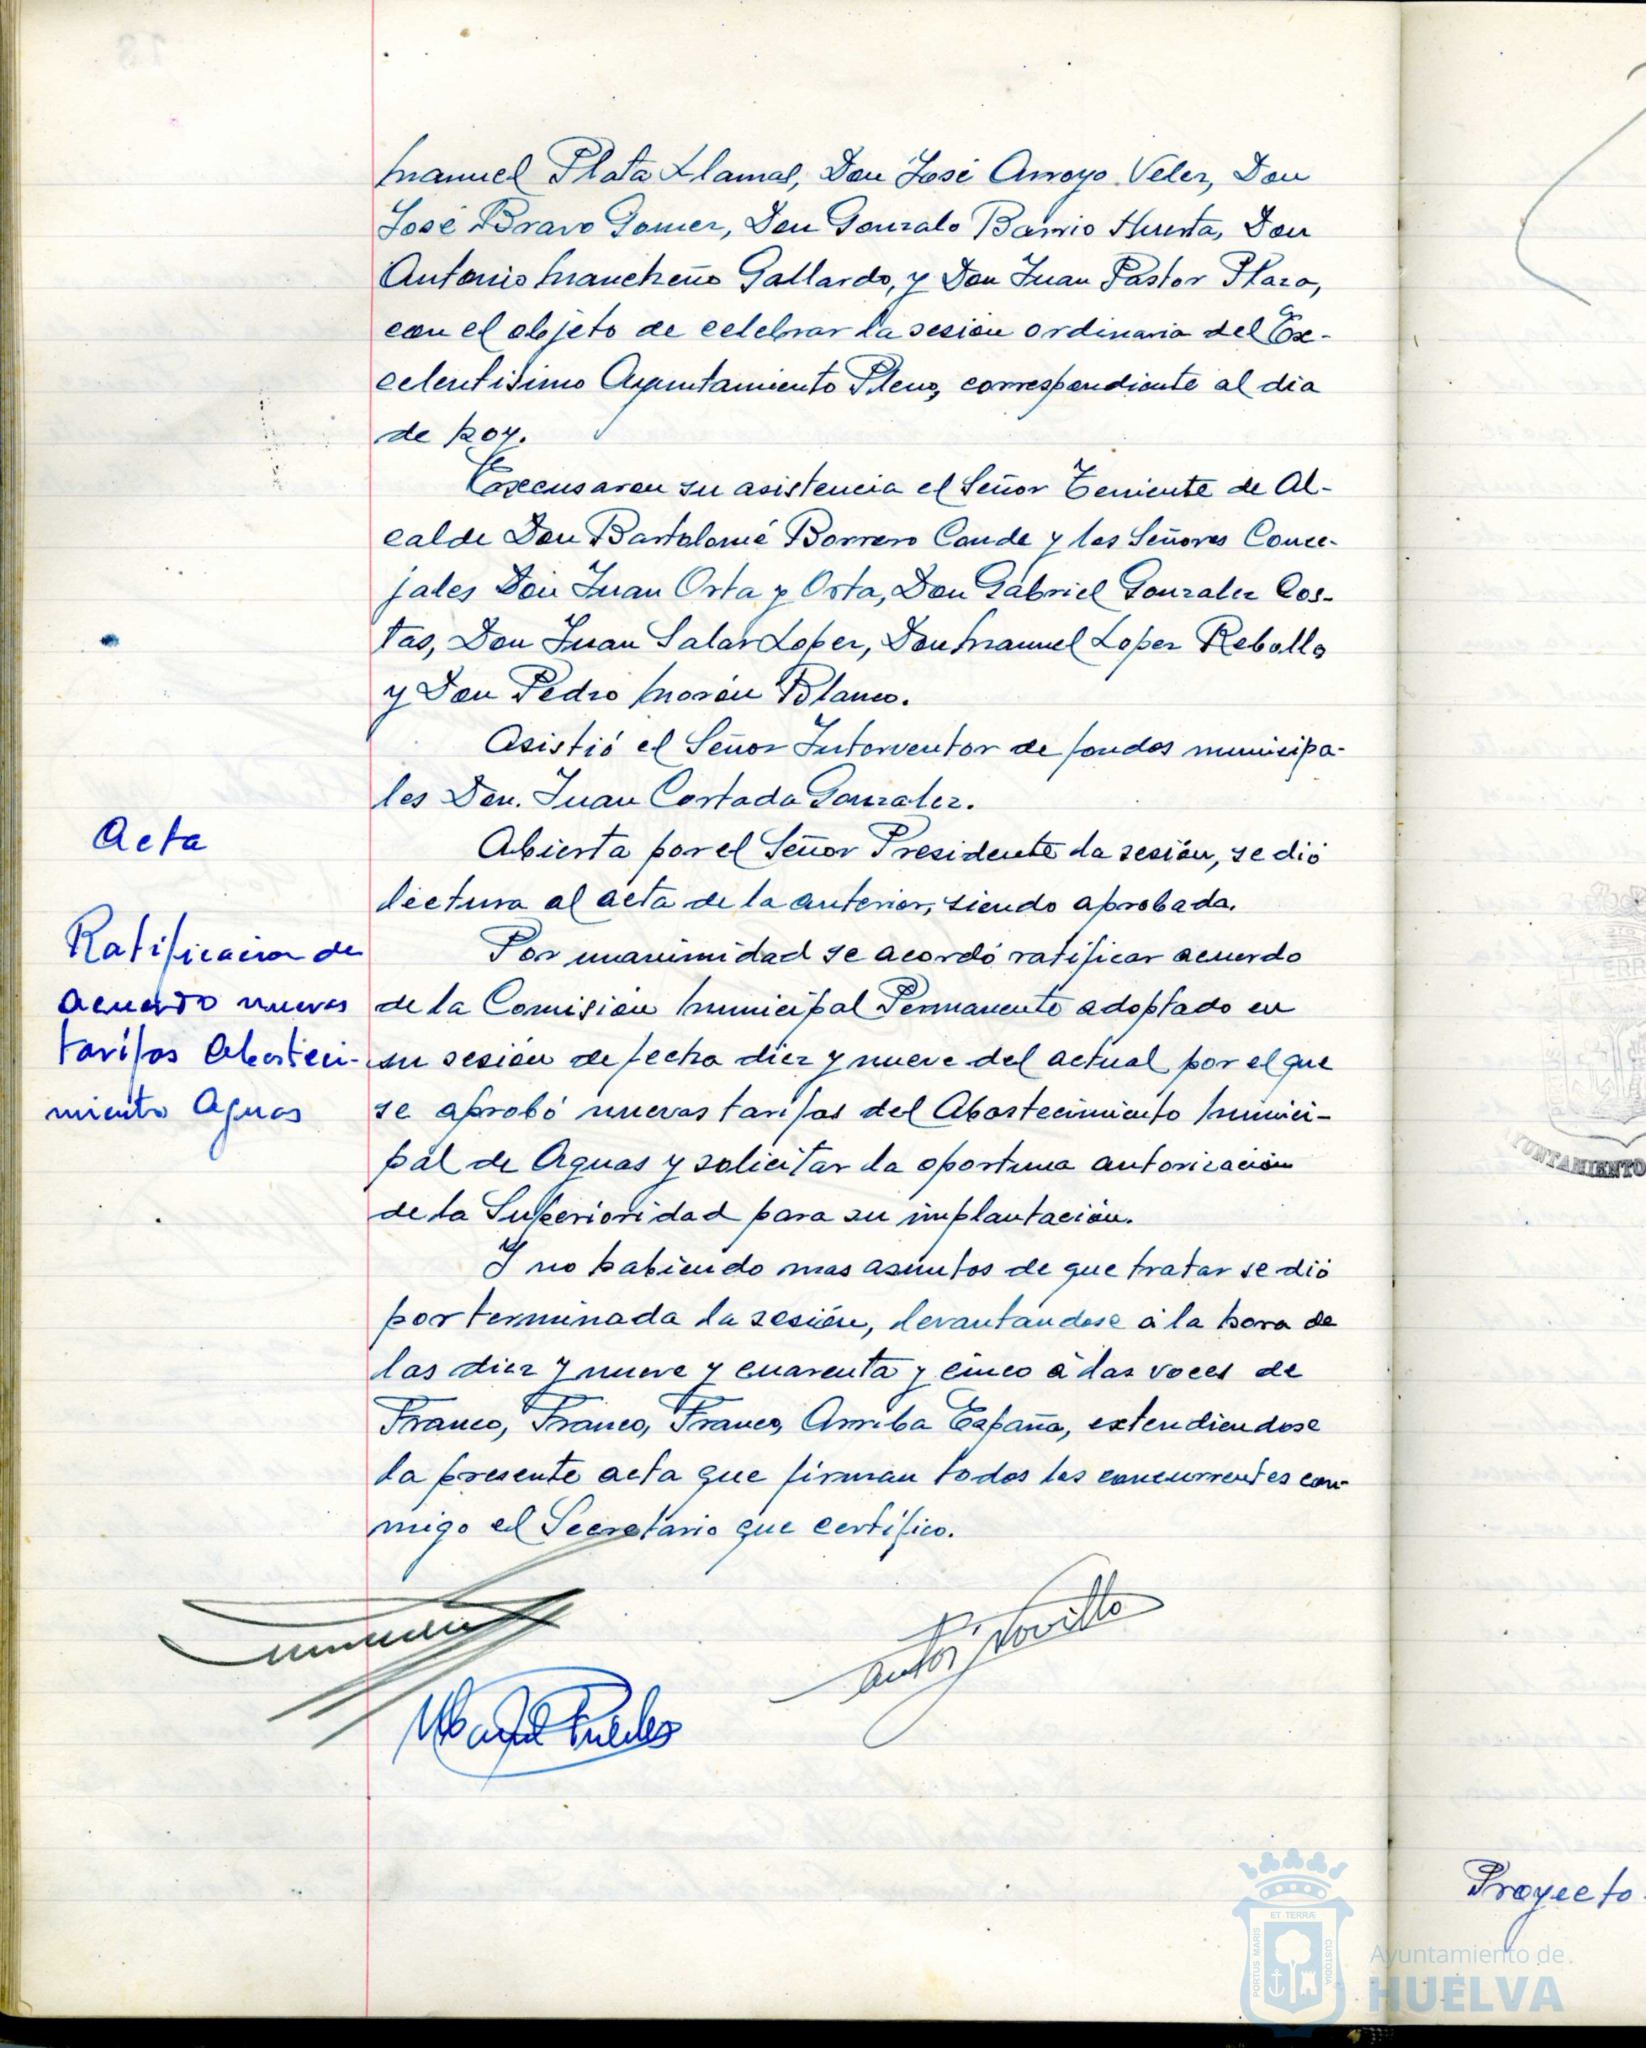 Manuel Plata Llamas, Don José Arroyo Velez, Don
José Bravo Gomez, Don Gonzalo Barrio Huerta, Don
Antonio Mancheño Gallardo, y Don Juan Pastor Plaza,
con el objeto de celebrar la sesión ordinaria del Ex-
celentisimo Ayuntamiento Pleno, correspondiente al dia
de hoy.
Excusaron su asistencia el Señor Teniente de Al-
calde Don Bartolomé Borrero Conde y los Señores Conce-
jales Don Juan Orta y Orta, Don Gabriel Gonzalez Cos-
tas, Don Juan Salas Lopez, Don Manuel Lopez Rebollo
y Don Pedro Morón Blanco.
Asistió el Señor Interventor de fondos municipa-
les Don. Juan Cortada Gonzalez.
Acta
Abierta por el Señor Presidente la sesión, se dió
lectura al acta de la anterior, siendo aprobada.
Ratificacion de
acuerdo nuevas
tarifas Abasteci-
miento Aguas
Por unanimidad se acordó ratificar acuerdo
de la Comisión Municipal Permanente adoptado en
su sesión de fecha diez y nueve del actual por el que
se aprobó nuevas tarifas del Abastecimiento Munici-
pal de Aguas y solicitar la oportuna autorización
de la Superioridad para su implantación.
Y no habiendo mas asuntos de que tratar se dió
por terminada la sesión, levantandose á la hora de
las diez y nueve y cuarenta y cinco á las voces de
Franco, Franco, Franco, Arriba España, extendiendose
la presente acta que firman todos los concurrentes con-
migo el Secretario que certifico.
Proyecto
PORTUS MARIS
ET TERRÆ
CUSTODIA
Ayuntamiento de
HUELVA